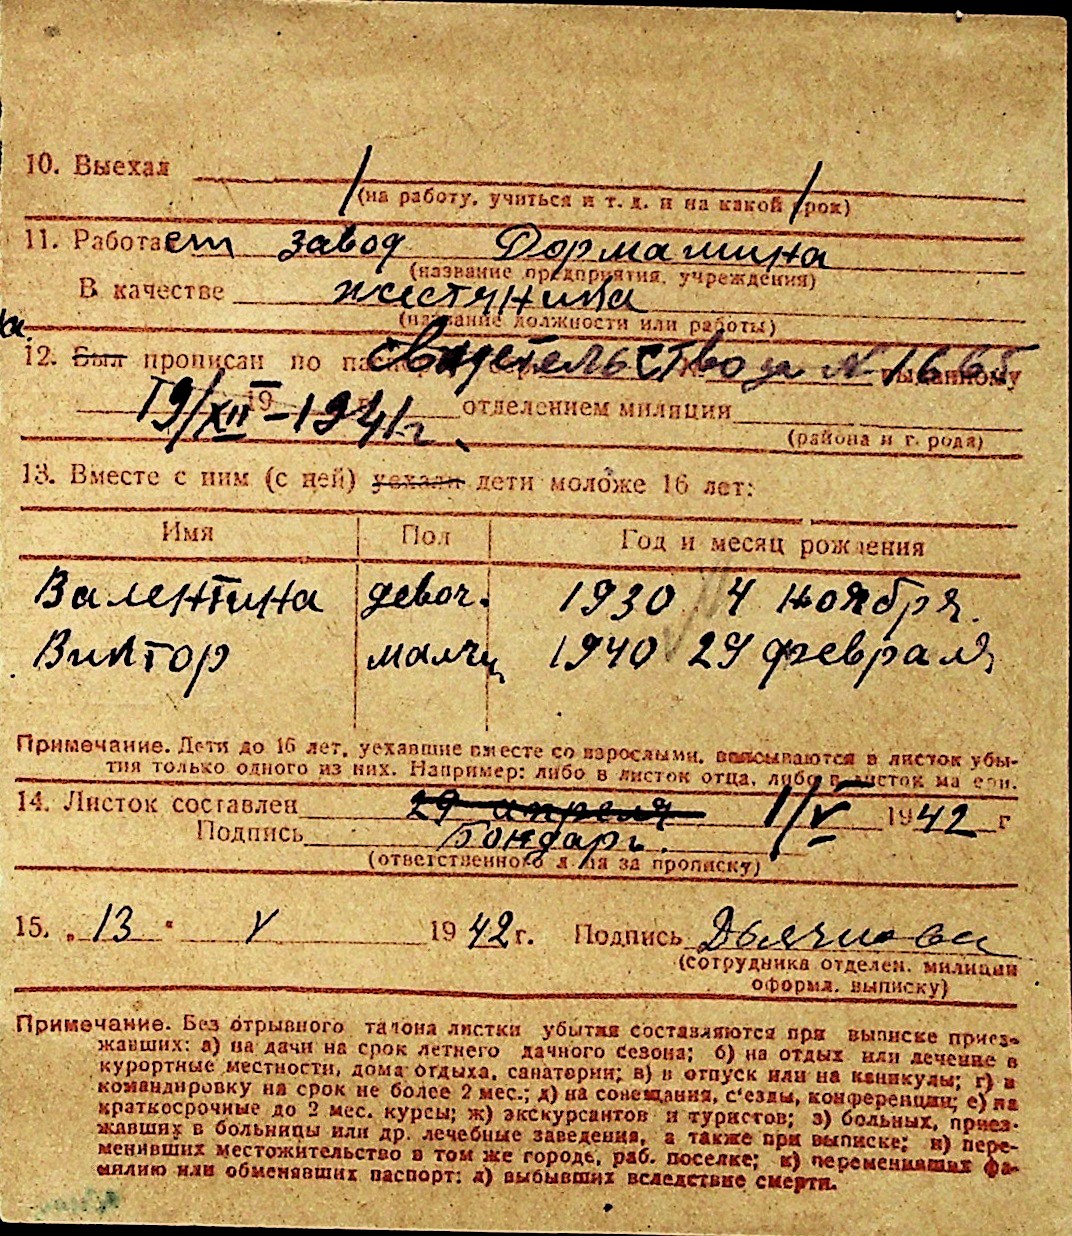 10. Выехал
(на работу, учиться и т. д. и на какой срок)
11. Работает завод Дормашина
(название предприятия, учреждения)
В качестве жестяника
(название должности или работы)
12. Был прописан по свидетельство № 1665 выданному
19/XII-1941г. отделением милиции
(района и г. рода)
13. Вместе с ним (с ней) уехали дети моложе 16 лет:
Имя Пол Год и месяц рождения
Валентина девоч. 1930 4 ноября.
Виктор малчи 1940 29 февраля
Примечание. Дети до 16 лет, уехавшие вместе со взрослыми, вписываются в листок убы-
тия только одного из них. Например: либо в листок отца, либо в листок ма ери.
14. Листок составлен 29 апреля 1/V 1942 г
Подпись Бондарь.
(ответственного л ца за прописку)
15. „13" V 1942 г. Подпись
(сотрудника отделен. милиции
оформл. выписку)
Примечание. Без отрывного талона листки убытия составляются при выписке приез-
жавших: а) на дачи на срок летнего дачного сезона; б) на отдых или лечение в
курортные местности, дома отдыха, санатории; в) в отпуск или на каникулы; г) в
командировку на срок не более 2 мес.; д) на совещания, с'езды, конференции; е) на
краткосрочные до 2 мес. курсы; ж) экскурсантов и туристов; з) больных, приез-
жавших в больницы или др. лечебные заведения, а также при выписке; и) пере-
менивших местожительство в том же городе, раб. поселке; к) переменивших фа-
милию или обменявших паспорт; л) выбывших вследствие смерти.